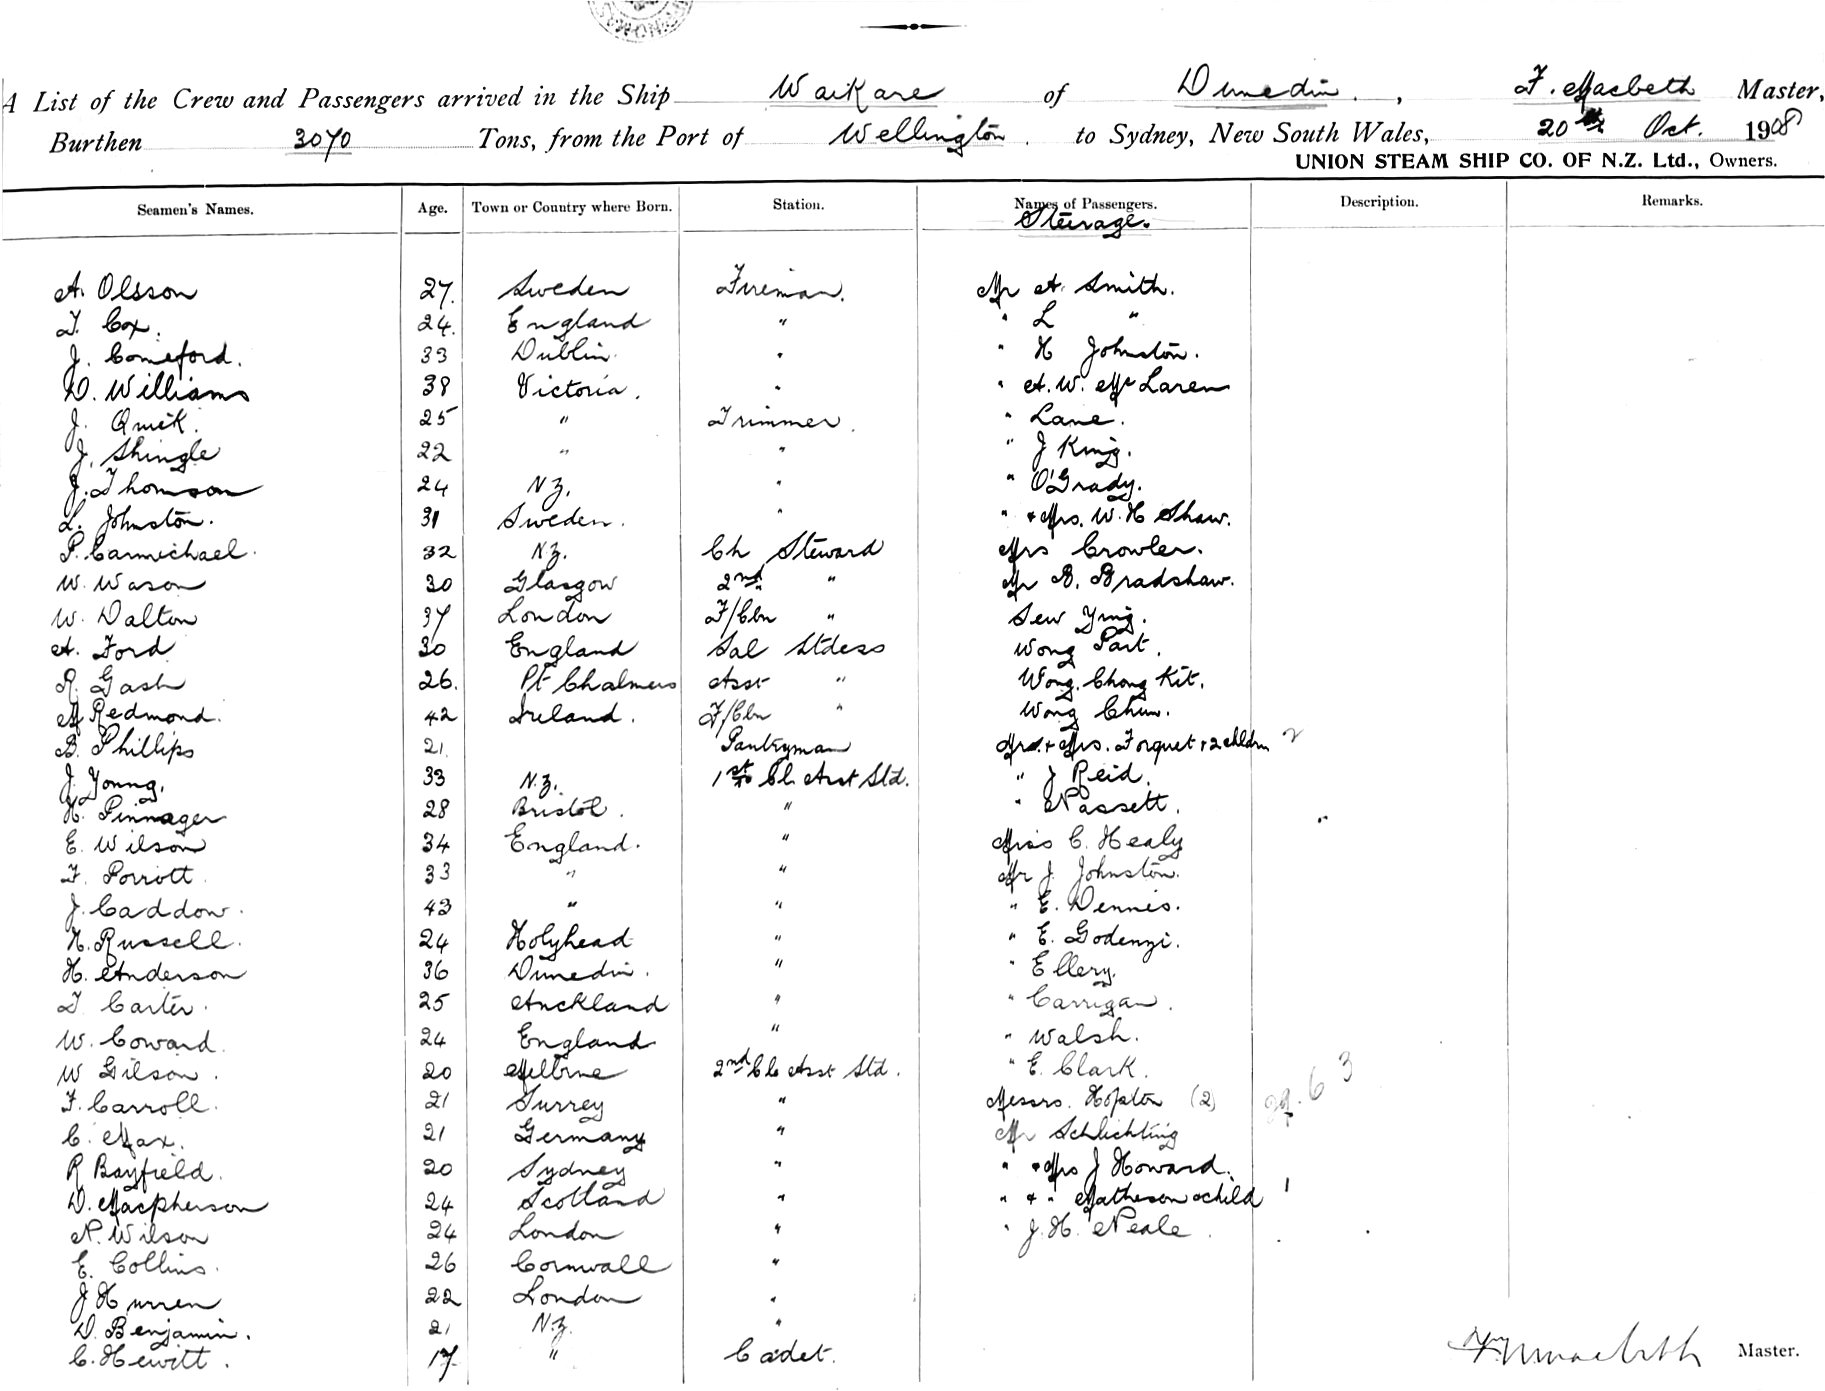 A List of the Crew and Passengers arrived in the Ship Waikare of Dunedin, F. Macbeth Master,
Burthen 3070 Tons, from the Port of Wellington to Sydney, New South Wales, 20th Oct. 1908
UNION STEAM SHIP CO. OF N.Z. Ltd., Owners.
Seamen's Names. Age. Town or Country where Born. Station. Names of Passengers. Description. Remarks.
Steerage.
A. Olsson 27. Sweden Fireman. Mr A. Smith.
T. Cox. 24. England " " L "
J. Comeford. 33 Dublin " " H Johnston.
D. Williams 38 Victoria. " " A. W. McLaren
J. Quick. 25 " Trimmer. " Lane.
J. Shingle 22 " " " J King.
J. Thomson 24 N.Z. " " O'Grady.
L. Johnston. 31 Sweden. " " + Mrs. W. H Shaw.
P. Carmichael. 32 N.Z. Ch Steward Mrs Crowler.
W. Wason 30 Glasgow 2nd " Mr B. Bradshaw.
W. Dalton 37 London F/Cbn " Sew Ying.
A. Ford 30 England Sal Stdess Wong Part.
R. Gash 26. Pt Chalmers Asst " Wong Chong Kit.
M Redmond. 42 Ireland. F/Cbn " Wong Chun.
B. Phillips 21. Pantryman Mr. + Mrs. Forquet + 2 chldrn 2
J. Young. 33 N.Z. 1st Cl Asst Std. " J Reid.
H. Pinnager 28 Bristol. " " Nassett.
E. Wilson 34 England. " Miss C. Healy
F. Porrott 33 " " Mr J. Johnston.
J. Caddow. 43 " " " E. Dennis.
H. Russell. 24 Holyhead " " E. Godenzi.
H. Anderson 36 Dunedin. " " Ellery.
T. Carter. 25 Auckland " " Carrigan.
W. Coward. 24 England " " Walsh.
W Gilson. 20 Melbne 2nd Cl Asst Std. " E. Clark.
F. Carroll. 21 Surrey " Messrs. Hopton (2) 29. 6 3
C. Max. 21 Germany " Mr Schlichting
R Bayfield. 20 Sydney " " + Mrs J Howard.
D. Macpherson 24 Scotland " " + " Matheson + child 1
N. Wilson 24 London " " J. H. Neale.
E. Collins. 26 Cornwall "
J Hurren 22 London "
D. Benjamin. 21 N.Z. "
C. Hewitt. 17 " Cadet.
F Macbeth Master.